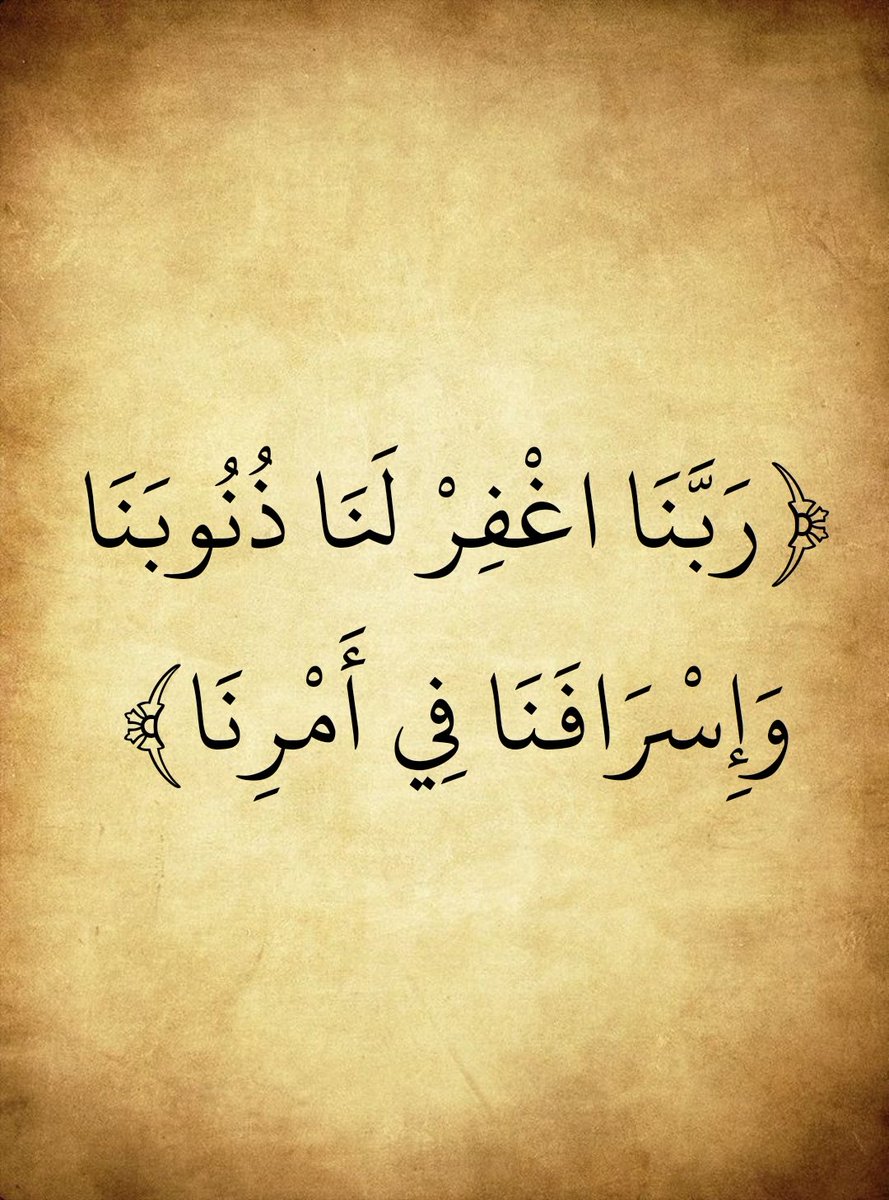 ﴿رَبَّنَا اغْفِرْ لَنَا ذُنُوبَنَا
وَإِسْرَافَنَا فِي أَمْرِنَا﴾